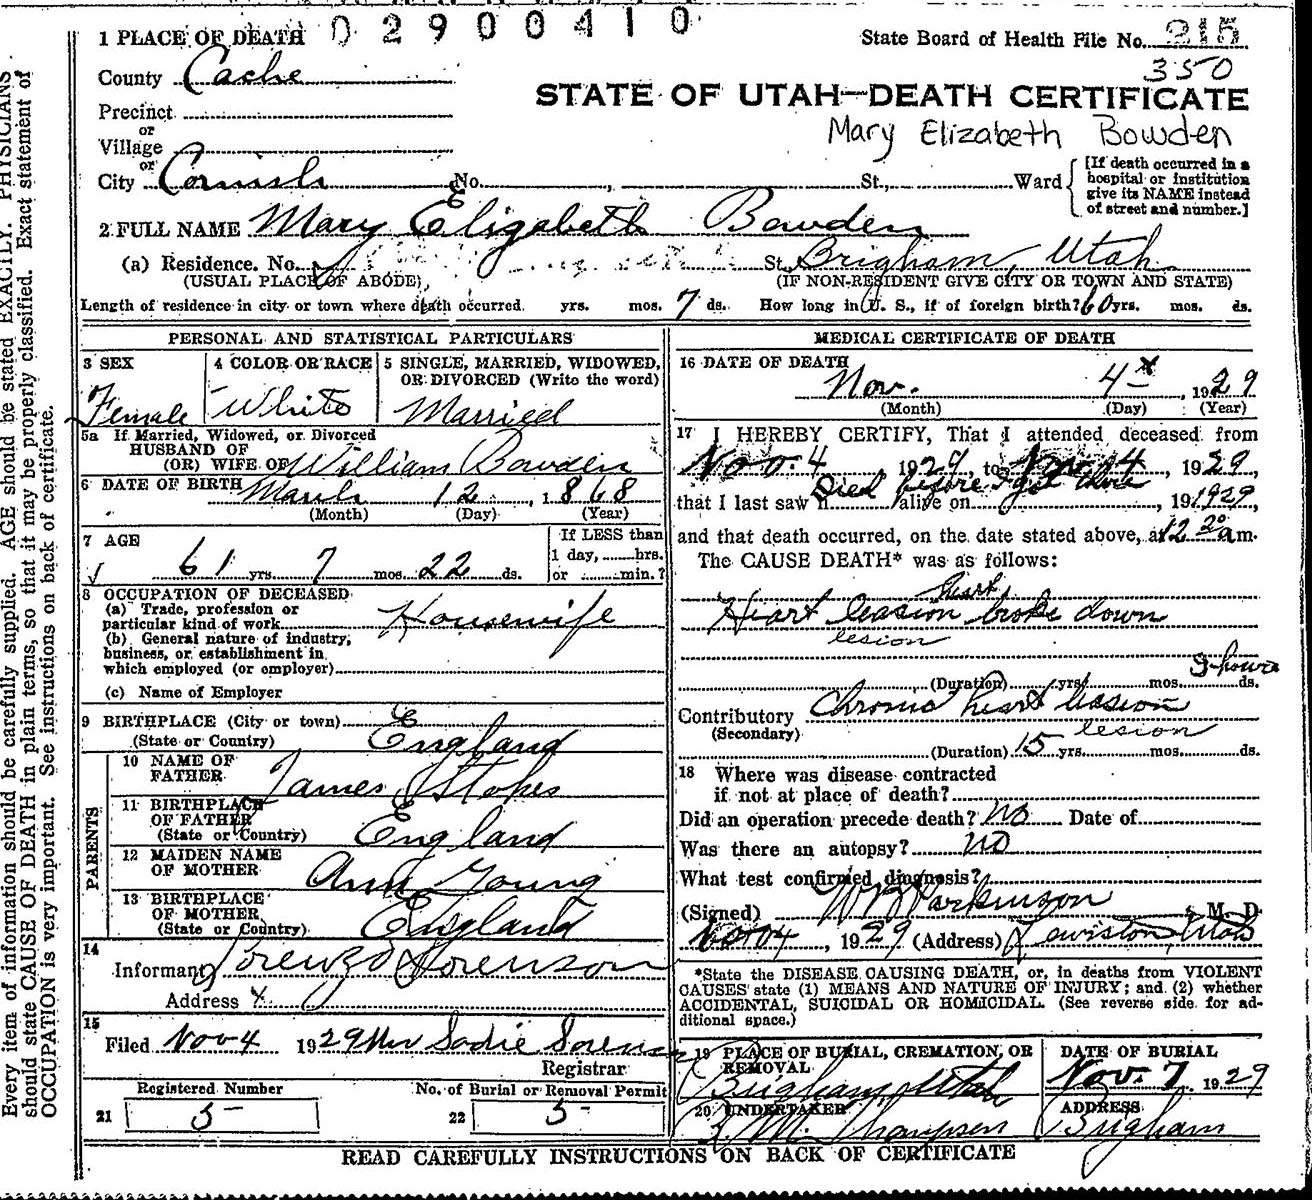 02900410
1 PLACE OF DEATH
State Board of Health File No. 215
350
County Cache
STATE OF UTAH—DEATH CERTIFICATE
Precinct
or
Mary Elizabeth Bowden
Village
or
City Cornish No. , St., Ward
[If death occurred in a
hospital or institution
give its NAME instead
of street and number.]
2 FULL NAME Mary Elizabeth Bowden
(a) Residence. No. St. Brigham, Utah
(USUAL PLACE OF ABODE) (IF NON-RESIDENT GIVE CITY OR TOWN AND STATE)
Length of residence in city or town where death occurred. yrs. mos. 7 ds. How long in U. S., if of foreign birth? 60 yrs. mos. ds.
PERSONAL AND STATISTICAL PARTICULARS
3 SEX
Female
4 COLOR OR RACE
White
5 SINGLE, MARRIED, WIDOWED,
OR DIVORCED (Write the word)
Married
5a If Married, Widowed, or Divorced
HUSBAND OF
(OR) WIFE OF William Bowden
6 DATE OF BIRTH March 12, 1868
(Month) (Day) (Year)
7 AGE
61 yrs. 7 mos. 22 ds.
If LESS than
1 day, hrs.
or min.?
8 OCCUPATION OF DECEASED
(a) Trade, profession or
particular kind of work Housewife
(b) General nature of industry,
business, or establishment in
which employed (or employer)
(c) Name of Employer
9 BIRTHPLACE (City or town)
(State or Country) England
PARENTS
10 NAME OF
FATHER James Stokes
11 BIRTHPLACE
OF FATHER
(State or Country) England
12 MAIDEN NAME
OF MOTHER Ann Young
13 BIRTHPLACE
OF MOTHER
(State or Country) England
14
Informant Lorenzo Sorenson
Address
15
Filed Nov 4 1929 Mrs Sadie Sorenson
Registrar
Registered Number No. of Burial or Removal Permit
21 5 22 5
MEDICAL CERTIFICATE OF DEATH
16 DATE OF DEATH
Nov. 4, 1929
(Month) (Day) (Year)
17 I HEREBY CERTIFY, That I attended deceased from
Nov. 4, 1929, to Nov. 4, 1929,
Died before I got there
that I last saw h alive on , 19 1929,
and that death occurred, on the date stated above, at 12 20 a m.
The CAUSE DEATH* was as follows:
heart
Heart leasion broke down
lesion
3 hours
(Duration) yrs. mos. ds.
Contributory Chronic heart leasion
(Secondary) lesion
(Duration) 15 yrs. mos. ds.
18 Where was disease contracted
if not at place of death?
Did an operation precede death? No Date of
Was there an autopsy? no
What test confirmed diagnosis?
(Signed) W B Parkinson, M. D.
Nov 4, 1929 (Address) Lewiston, Utah
*State the DISEASE CAUSING DEATH, or, in deaths from VIOLENT
CAUSES state (1) MEANS AND NATURE OF INJURY; and (2) whether
ACCIDENTAL, SUICIDAL OR HOMICIDAL. (See reverse side for ad-
ditional space.)
19 PLACE OF BURIAL, CREMATION, OR
REMOVAL
Brigham, Utah
DATE OF BURIAL
Nov. 7, 1929
20 UNDERTAKER
M. Thompson
ADDRESS
Brigham
READ CAREFULLY INSTRUCTIONS ON BACK OF CERTIFICATE
Every item of information should be carefully supplied. AGE should be stated EXACTLY. PHYSICIANS
should state CAUSE OF DEATH in plain terms, so that it may be properly classified. Exact statement of
OCCUPATION is very important. See instructions on back of certificate.